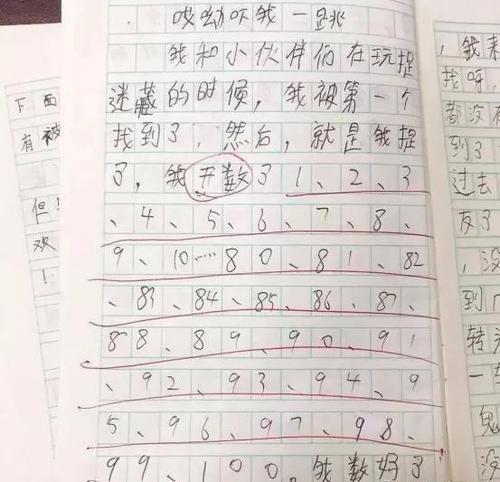 哎呦吓我一跳
我和小伙伴们在玩捉
迷藏的时候，我被第一个
找到了，然后，就是我捉
了，我开数了1、2、3
、4、5、6、7、8、
9、10……80、81、82
、83、84、85、86、87、
88、89、90、91
、92、93、94、9
5、96、97、98、
99、100。我数好了
下面
有被
但！
欢
！
，我来
找呀，
都没有
到了
过去
友了
，没
到广
转
一
鬼
没